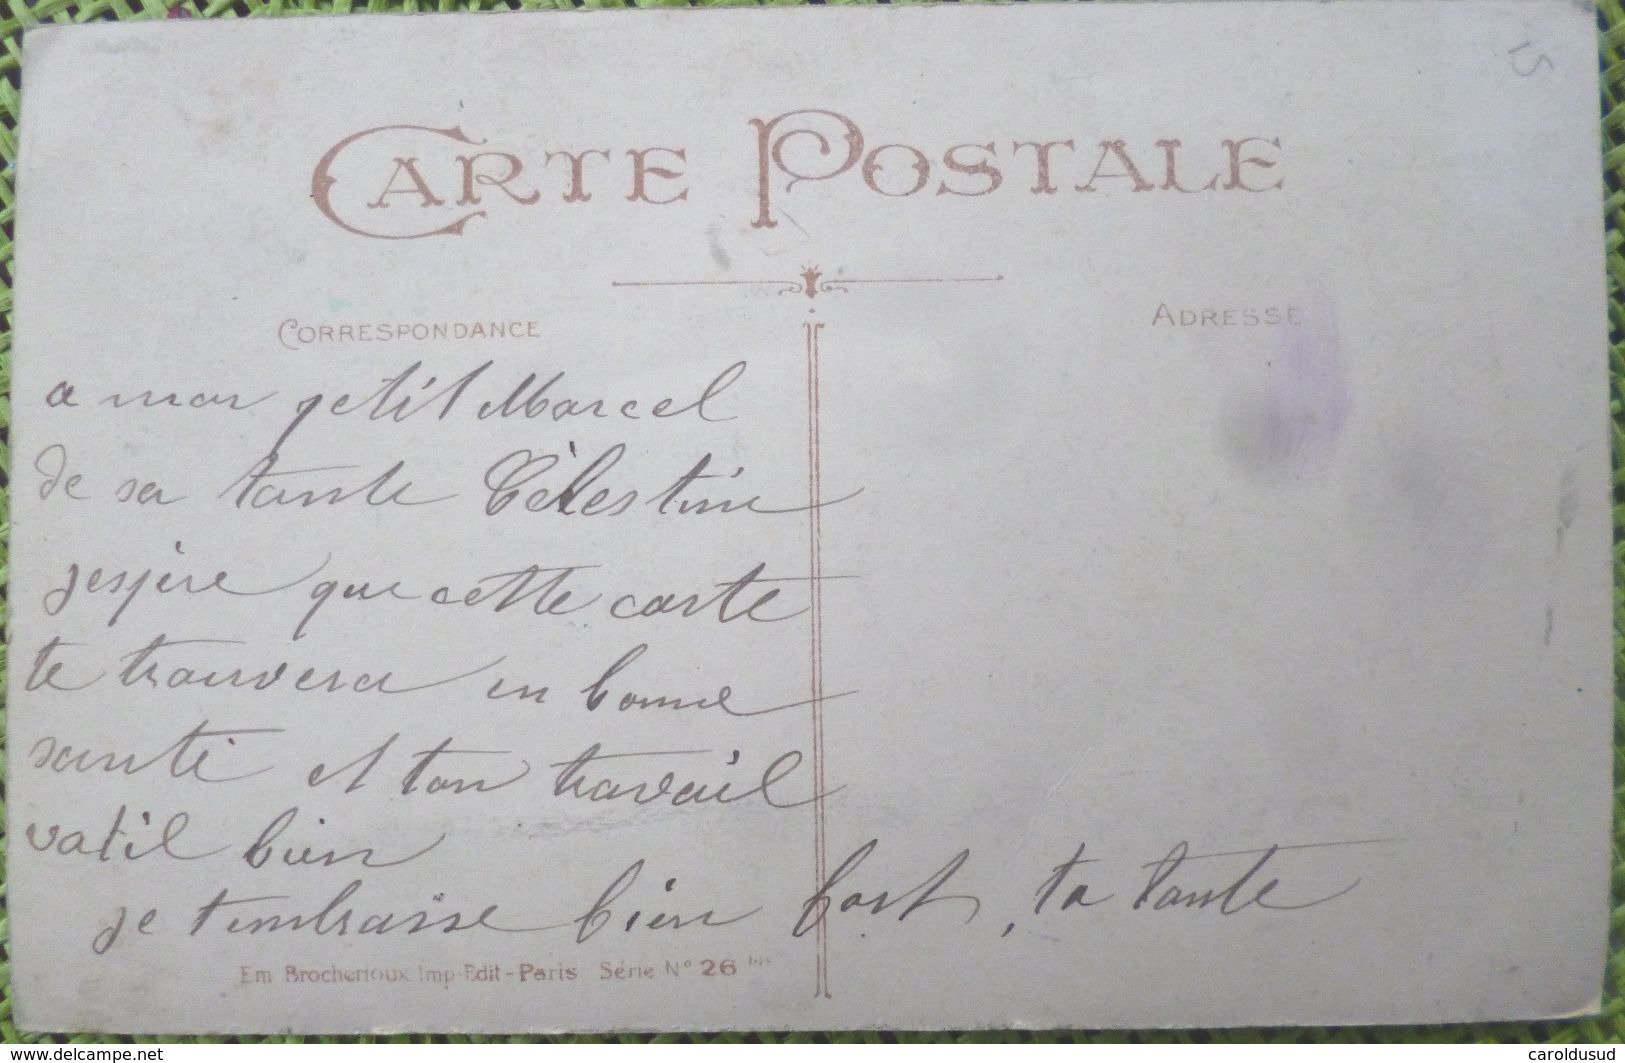 15
CARTE POSTALE
CORRESPONDANCE
ADRESSE
a mon petit Marcel
de sa tante Célestine
j'espère que cette carte
te trouvera en bonne
santé et ton travail
vatil bien
je t'embrasse bien fort, ta tante
Em Brocherioux Imp-Edit-Paris Série N° 26 bis
www.delcampe.net
caroldusud